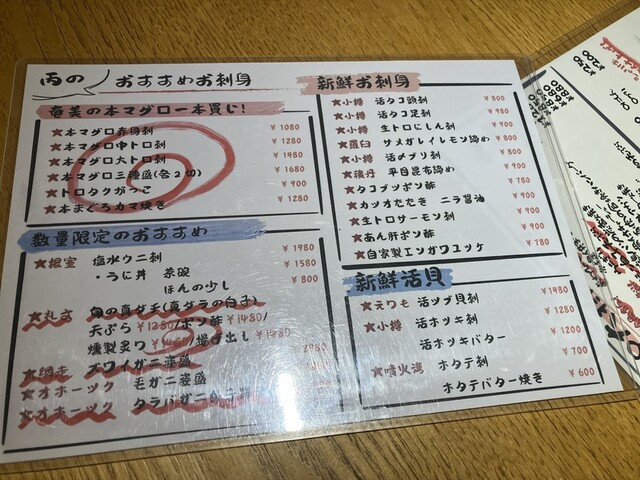 丙の おすすめお刺身
奄美の本マグロ一本買い!
★本マグロ赤身刺 ¥1080
★本マグロ中トロ刺 ¥1280
★本マグロ大トロ刺 ¥1480
★本マグロ三種盛(各2切) ¥1680
★トロタクがっこ ¥900
★本まぐろカマ焼き ¥1280
数量限定のおすすめ
★根室 塩水ウニ刺 ¥1980
・うに丼 茶碗 ¥1580
ほんの少し ¥800
★礼文 旬の真ダチ(真ダラの白子)
天ぷら¥1280/ポン酢¥1480/
燻製炙り /揚げ出し¥1480
★網走 ズワイガニ姿盛
★オホーツク 毛ガニ姿盛
★オホーツク タラバガニ
新鮮お刺身
★小樽 活タコ頭刺 ¥800
★小樽 活タコ足刺 ¥900
★小樽 生トロにしん刺 ¥900
★羅臼 サメガレイレモン締め ¥800
★小樽 活〆ブリ刺 ¥900
★積丹 平目昆布締め ¥900
★タコブツポン酢 ¥780
★カツオたたき ニラ醤油 ¥900
★生トロサーモン刺 ¥900
★あん肝ポン酢 ¥900
★自家製エンガワユッケ ¥780
新鮮活貝
★えりも 活ツブ貝刺 ¥1480
★小樽 活ホッキ刺 ¥1280
活ホッキバター ¥1200
★噴火湾 ホタテ刺 ¥700
ホタテバター焼き ¥600